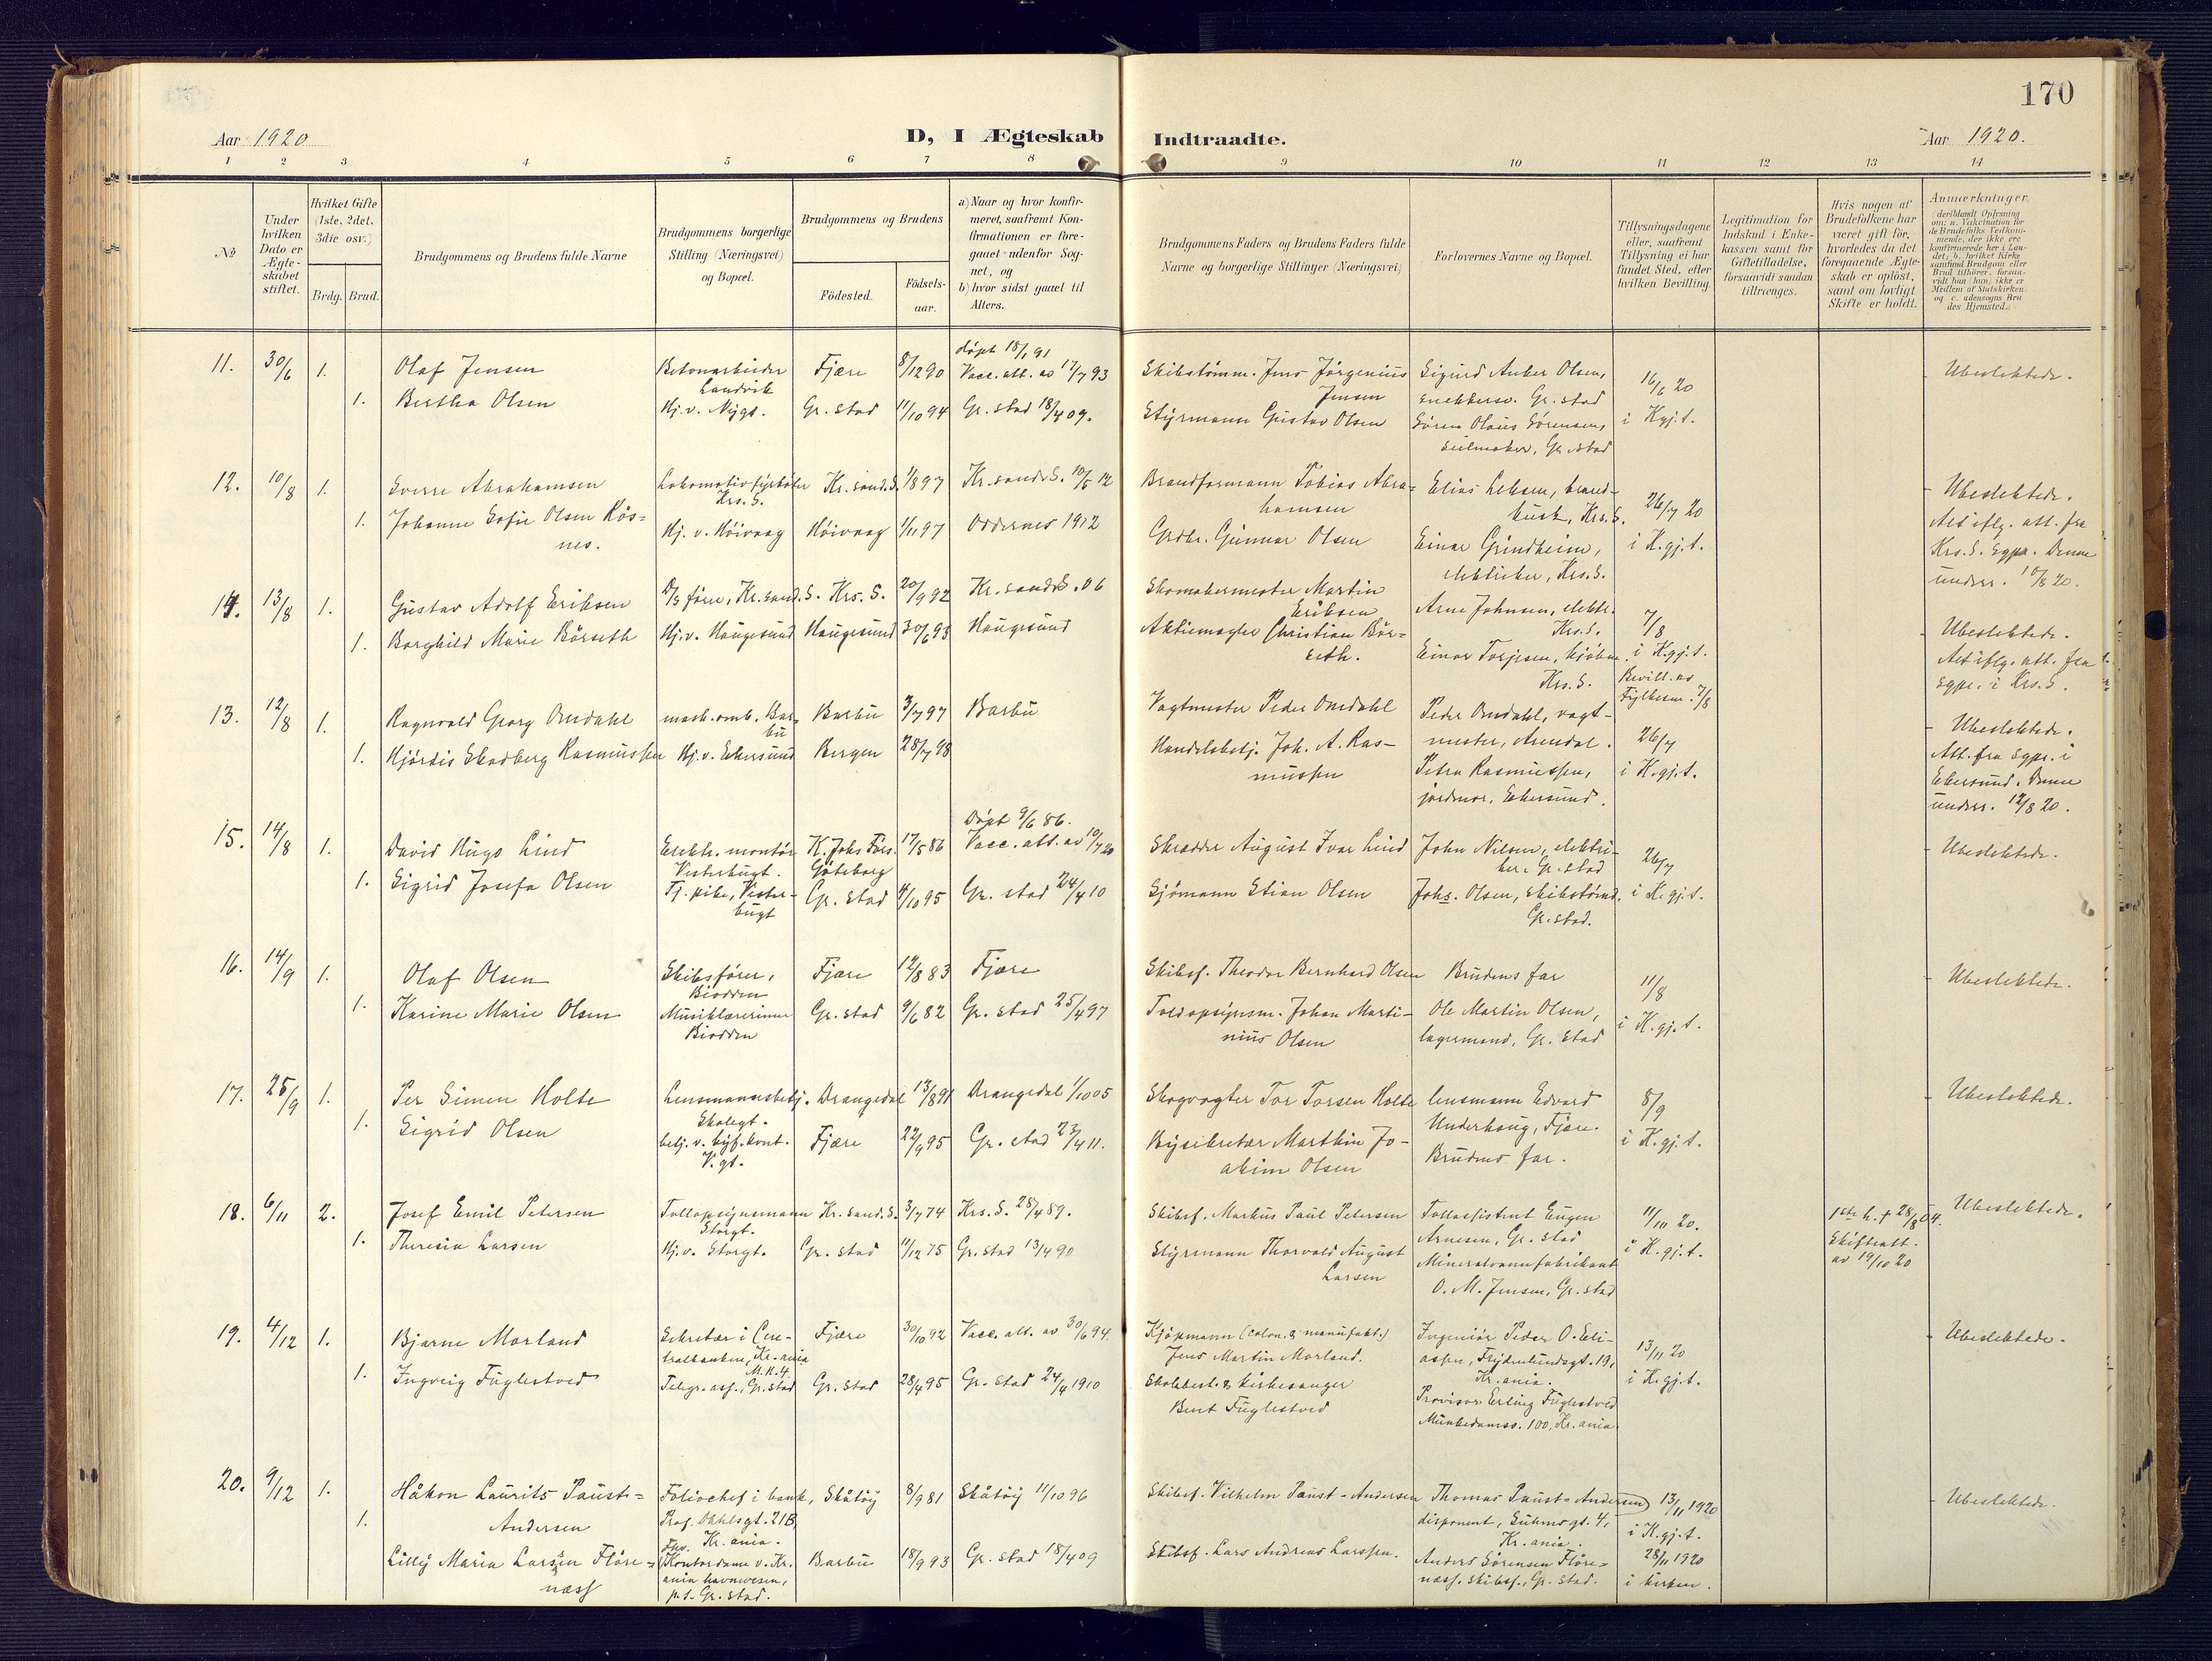 170
Aar 1920
D, I Ægteskab
Indtraadte.
Aar 1920.
1 2 3 4 5 6 7 8 9 10 11 12 13 14
No
Under hvilken Dato er Ægteskabet stiftet.
Hvilket Gifte (1ste, 2det, 3die osv.)
Brdg. Brud.
Brudgommens og Brudens fulde Navne
Brudgommens borgerlige Stilling (Næringsvei) og Bopæl.
Brudgommens og Brudens
Fødested.
Fødsels-aar.
a) Naar og hvor konfirmeret, saafremt Konfirmationen er foregaaet udenfor Sognet, og
b) hvor sidst gaaet til Alters.
Brudgommens Faders og Brudens Faders fulde Navne og borgerlige Stillinger (Næringsvei)
Forlovernes Navne og Bopæl.
Tillysningsdagene eller, saafremt Tillysning ei har fundet Sted, efter hvilken Bevilling.
Legitimation for Indskud i Enkekassen samt for Giftetilladelse, forsaavidt saadan tiltrænges.
Hvis nogen af Brudefolkene har været gift før, hvorledes da det foregaaende Ægteskab er opløst, samt om lovligt Skifte er holdt.
Anmærkninger (deriblandt Oplysning om: a. Vakcination for de Brudefolks Vedkommende, der ikke ere konfirmerede her i Landet; b. hvilket Kirkesamfund Brudgom eller Brud tilhører, forsaavidt han (hun) ikke er Medlem af Statskirken, og c. udensogns Brudes Hjemsted.)
11. 30/6 1. Olaf Jensen Betonarbeider Landvik Fjære 8/12 90 døpt 18/1 91 Vacc. att. av 17/7 93 Skibstømm. Jens Jørgenius Jensen Sigurd Anker Olsen, snekkersv. Gr.stad 16/6 20 i Kgj.t. Ubeslektede.
1. Bertha Olsen Hj. v. Nygt. Gr. stad 11/10 94 Gr. stad 18/4 09. Styrmann Gustav Olsen Søren Olaus Sørensen, seilmaker, Gr. stad
12. 10/8 1. Sverre Abrahamsen Lokomotivfyrbøter Krs. S. Kr.sand.S. 1/8 97 Kr. sand S. 10/5 12 Brandformann Tobias Abrahamsen Elias Leksen, brandkusk, Krs.S. 26/7 20 i K.gj.t. Ubeslektede.
1. Johanne Sofie Olsen Røsnes. Hj. v. Høivaag Høivaag 1/11 97 Oddernes 1912 Grdbr. Gunnar Olsen Einar Grindheim, elektriker, Krs.S. Alt iflg. att. fra Krs. S. sgpr. Denne underr. 10/8 20.
14. 13/8 1. Gustav Adolf Eriksen D/s fører, Kr.sand.S. Krs. S. 20/9 92 Kr. sand S. 06 Skomakermester Martin Eriksen Arne Johnsen, elektr. Krs.S. 7/8 i K.gj.t. Ubeslektede.
1. Borghild Marie Børseth Hj. v. Haugesund Haugesund 30/6 93 Haugesund Aktiemægler Christian Børseth. Einar Torjesen, kjøbm. Krs. S. Bevill. av Fylkesm. 7/8 Alt iflg. att. fra sgpr. i Krs.S.
13. 12/8 1. Ragnvald Georg Omdahl mask.omb. Barbu Barbu 3/7 97 Barbu Vagtmester Peder Omdahl Peder Omdahl, vagtmester, Arendal. 26/7 i K.gj.t. Ubeslektede.
1. Hjørdis Skadberg Rasmussen Hj. v. Ekersund Bergen 28/7 98 Handelsbetj. Joh. A. Rasmussen Petra Rasmussen, jordmor, Ekersund. Att. fra sgpr. i Ekersund. Denne underr. 12/8 20.
15. 14/8 1. David Hugo Lind Elektr. montør Vesterbugt. K. Johs Førs. Göteborg 17/5 86 Døpt 9/6 86. Vacc. att. av 10/7 20 Skrædder August Ivar Lind John Nilsen, elektriker, Gr. stad 26/7 i K.gj.t. Ubeslektede.
1. Sigrid Josefa Olsen Tj. pike, Vesterbugt Gr. stad 4/10 95 Gr. stad 24/4 10 Sjömann Stian Olsen Johs. Olsen, skibstømm. Gr. stad.
16. 14/9 1. Olaf Olsen Skibsfører, Biodden Fjære 12/8 83 Fjære Skibsf. Theodor Bernhard Olsen Brudens far 11/8 i K.gj.t. Ubeslektede.
1. Karine Marie Olsen Musiklærerinne Biodden Gr. stad 9/6 82 Gr. stad 25/4 97 Toldopsynsm. Johan Martinius Olsen Ole Martin Olsen, lagermand, Gr. stad
17. 25/9 1. Per Simen Holte Lensmannsbetj. Skolegt. Drangedal 13/8 91 Drangedal 1/10 05 Skogvogter Tor Torsen Holte Lensmann Edvard Underhaug, Fjære. 8/9 i K.gj.t. Ubeslektede.
1. Sigrid Olsen betj. v. byf.kont. V.gt. Fjære 22/9 95 Gr. stad 23/4 11. Bysekretær Marthin Joakim Olsen Brudens far.
18. 6/11 2. Josef Emil Petersen Tollopsynsmann Storgt. Kr. sand.S. 3/7 74 Krs. S. 28/4 89. Skibsf. Markus Paul Petersen Tollassistent Eugen Arnesen, Gr. stad 11/10 20. i K.gj.t. 1ste h. † 28/8 04. Skifteatt. av 19/10 20 Ubeslektede.
1. Theresia Larsen Hj. v. Storgt. Gr. stad 11/12 75 Gr. stad 13/4 90 Styrmann Thorvald August Larsen Mineralvannfabrikant O. M. Jensen, Gr. stad
19. 4/12 1. Bjarne Morland Sekretær i Centralbanken, Kr.ania Fjære 30/10 92 Vacc. att. av 30/6 94. Kjøpmann (colon. & manufakt.) Jens Martin Morland. Ingeniør Peder O. Eliassen, Frydenlundsgt. 19, Kr.ania. 13/11 20 i K.gj.t. Ubeslektede.
1. Ingveig Fuglestved Telegr. ass., Gr. stad Gr. stad 28/4 95 Gr. stad 24/4 1910 Skolebest. & kirkesanger Bent Fuglestved Provisor Erling Fuglestved Munkedamsv. 100, Kr.ania.
20. 9/12 1. Håkon Laurits Paust-Andersen Foliochef i bank, Prof. Dahlsgt. 21B, Kr.ania. Skåtøy 8/9 81 Skåtøy 11/10 96 Skibsf. Vilhelm Paust-Andersen Thomas Paust-Andersen, disponent, Suhmsgt. 4, Kr. ania. 13/11 1920 i K.gj.t. Ubeslektede.
1. Lilly Maria Larssen Florenæss Fhv. Kontordame v. Kr.ania havnvesen, p.t. Gr. stad. Barbu 18/9 93 Gr. stad 18/4 09 Skibsf. Lars Andreas Larssen. Anders Sörensen Florenæss, skibsf., Gr. stad. 28/11 1920 i kirken.